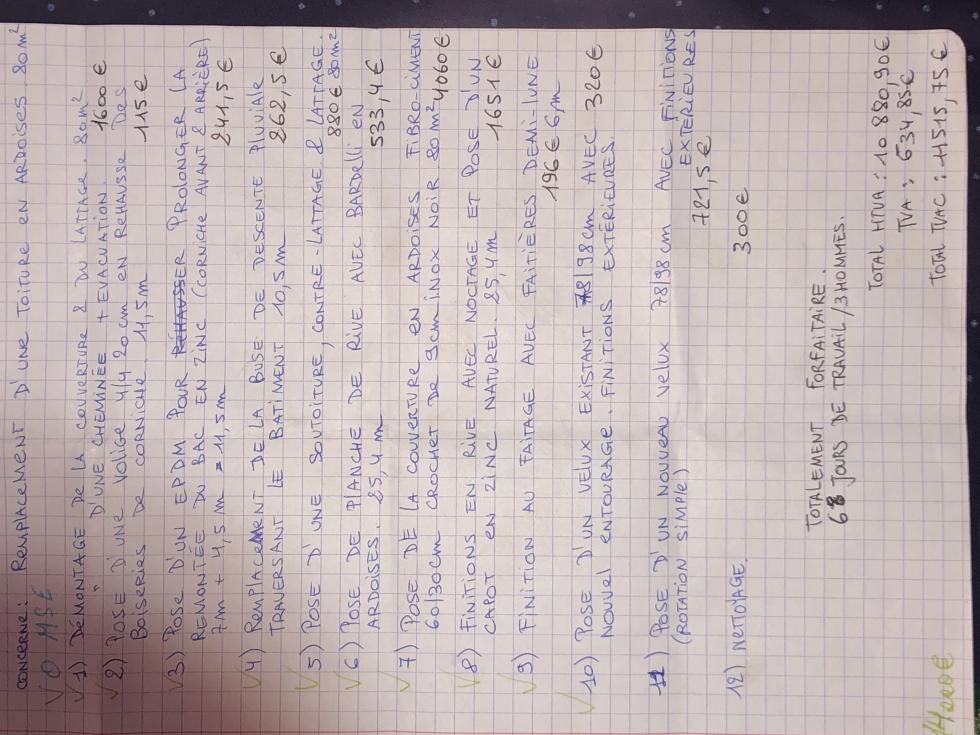 CONCERNE: REMPLACEMENT D'UNE TOITURE EN ARDOISES 80 m²
√ 0 MSE
√ 1) DÉMONTAGE DE LA COUVERTURE & DU LATTAGE. 80m²
" D'UNE CHEMINÉE + EVACUATION. 1600 €
√ 2) POSE D'UNE VOLIGE 4/4 20 cm EN REHAUSSE DES
BOISERIES DE CORNICHE. 11,5m 115 €
√ 3) POSE D'UN EPDM POUR REHAUSSER PROLONGER LA
REMONTÉE DU BAC EN ZINC (CORNICHE AVANT & ARRIÈRE)
7m + 4,5 m = 11,5m 241,5 €
√ 4) REMPLACEMENT DE LA BUSE DE DESCENTE PLUVIALE
TRAVERSANT LE BATIMENT 10,5m 262,5 €
√ 5) POSE D'UNE SOUTOITURE, CONTRE-LATTAGE & LATTAGE.
880 € 80m²
√ 6) POSE DE PLANCHE DE RIVE AVEC BARDELLI EN
ARDOISES. 25,4 m 533,4 €
√ 7) POSE DE LA COUVERTURE EN ARDOISES FIBRO-CIMENT
60/30cm CROCHET DE 9cm INOX NOIR 80 m² 4060 €
√ 8) FINITIONS EN RIVE AVEC NOCTAGE ET POSE D'UN
CAPOT EN ZINC NATUREL. 25,4m 1651 €
√ 9) FINITION AU FAITAGE AVEC FAITIÈRES DEMI-LUNE
196 € 6,m
√ 10) POSE D'UN VELUX EXISTANT 78/98cm AVEC 320 €
NOUVEL ENTOURAGE. FINITIONS EXTÉRIEURES.
11) POSE D'UN NOUVEAU VELUX 78/98 cm AVEC FINITIONS
(ROTATION SIMPLE) EXTÉRIEURES
721,5 €
12) NETTOYAGE. 300 €
TOTALEMENT FORFAITAIRE.
JOURS DE TRAVAIL / 3 HOMMES.
TOTAL HTVA : 10 880,90 €
TVA : 634,85 €
TOTAL TVAC : 11515,75 €
14000 €